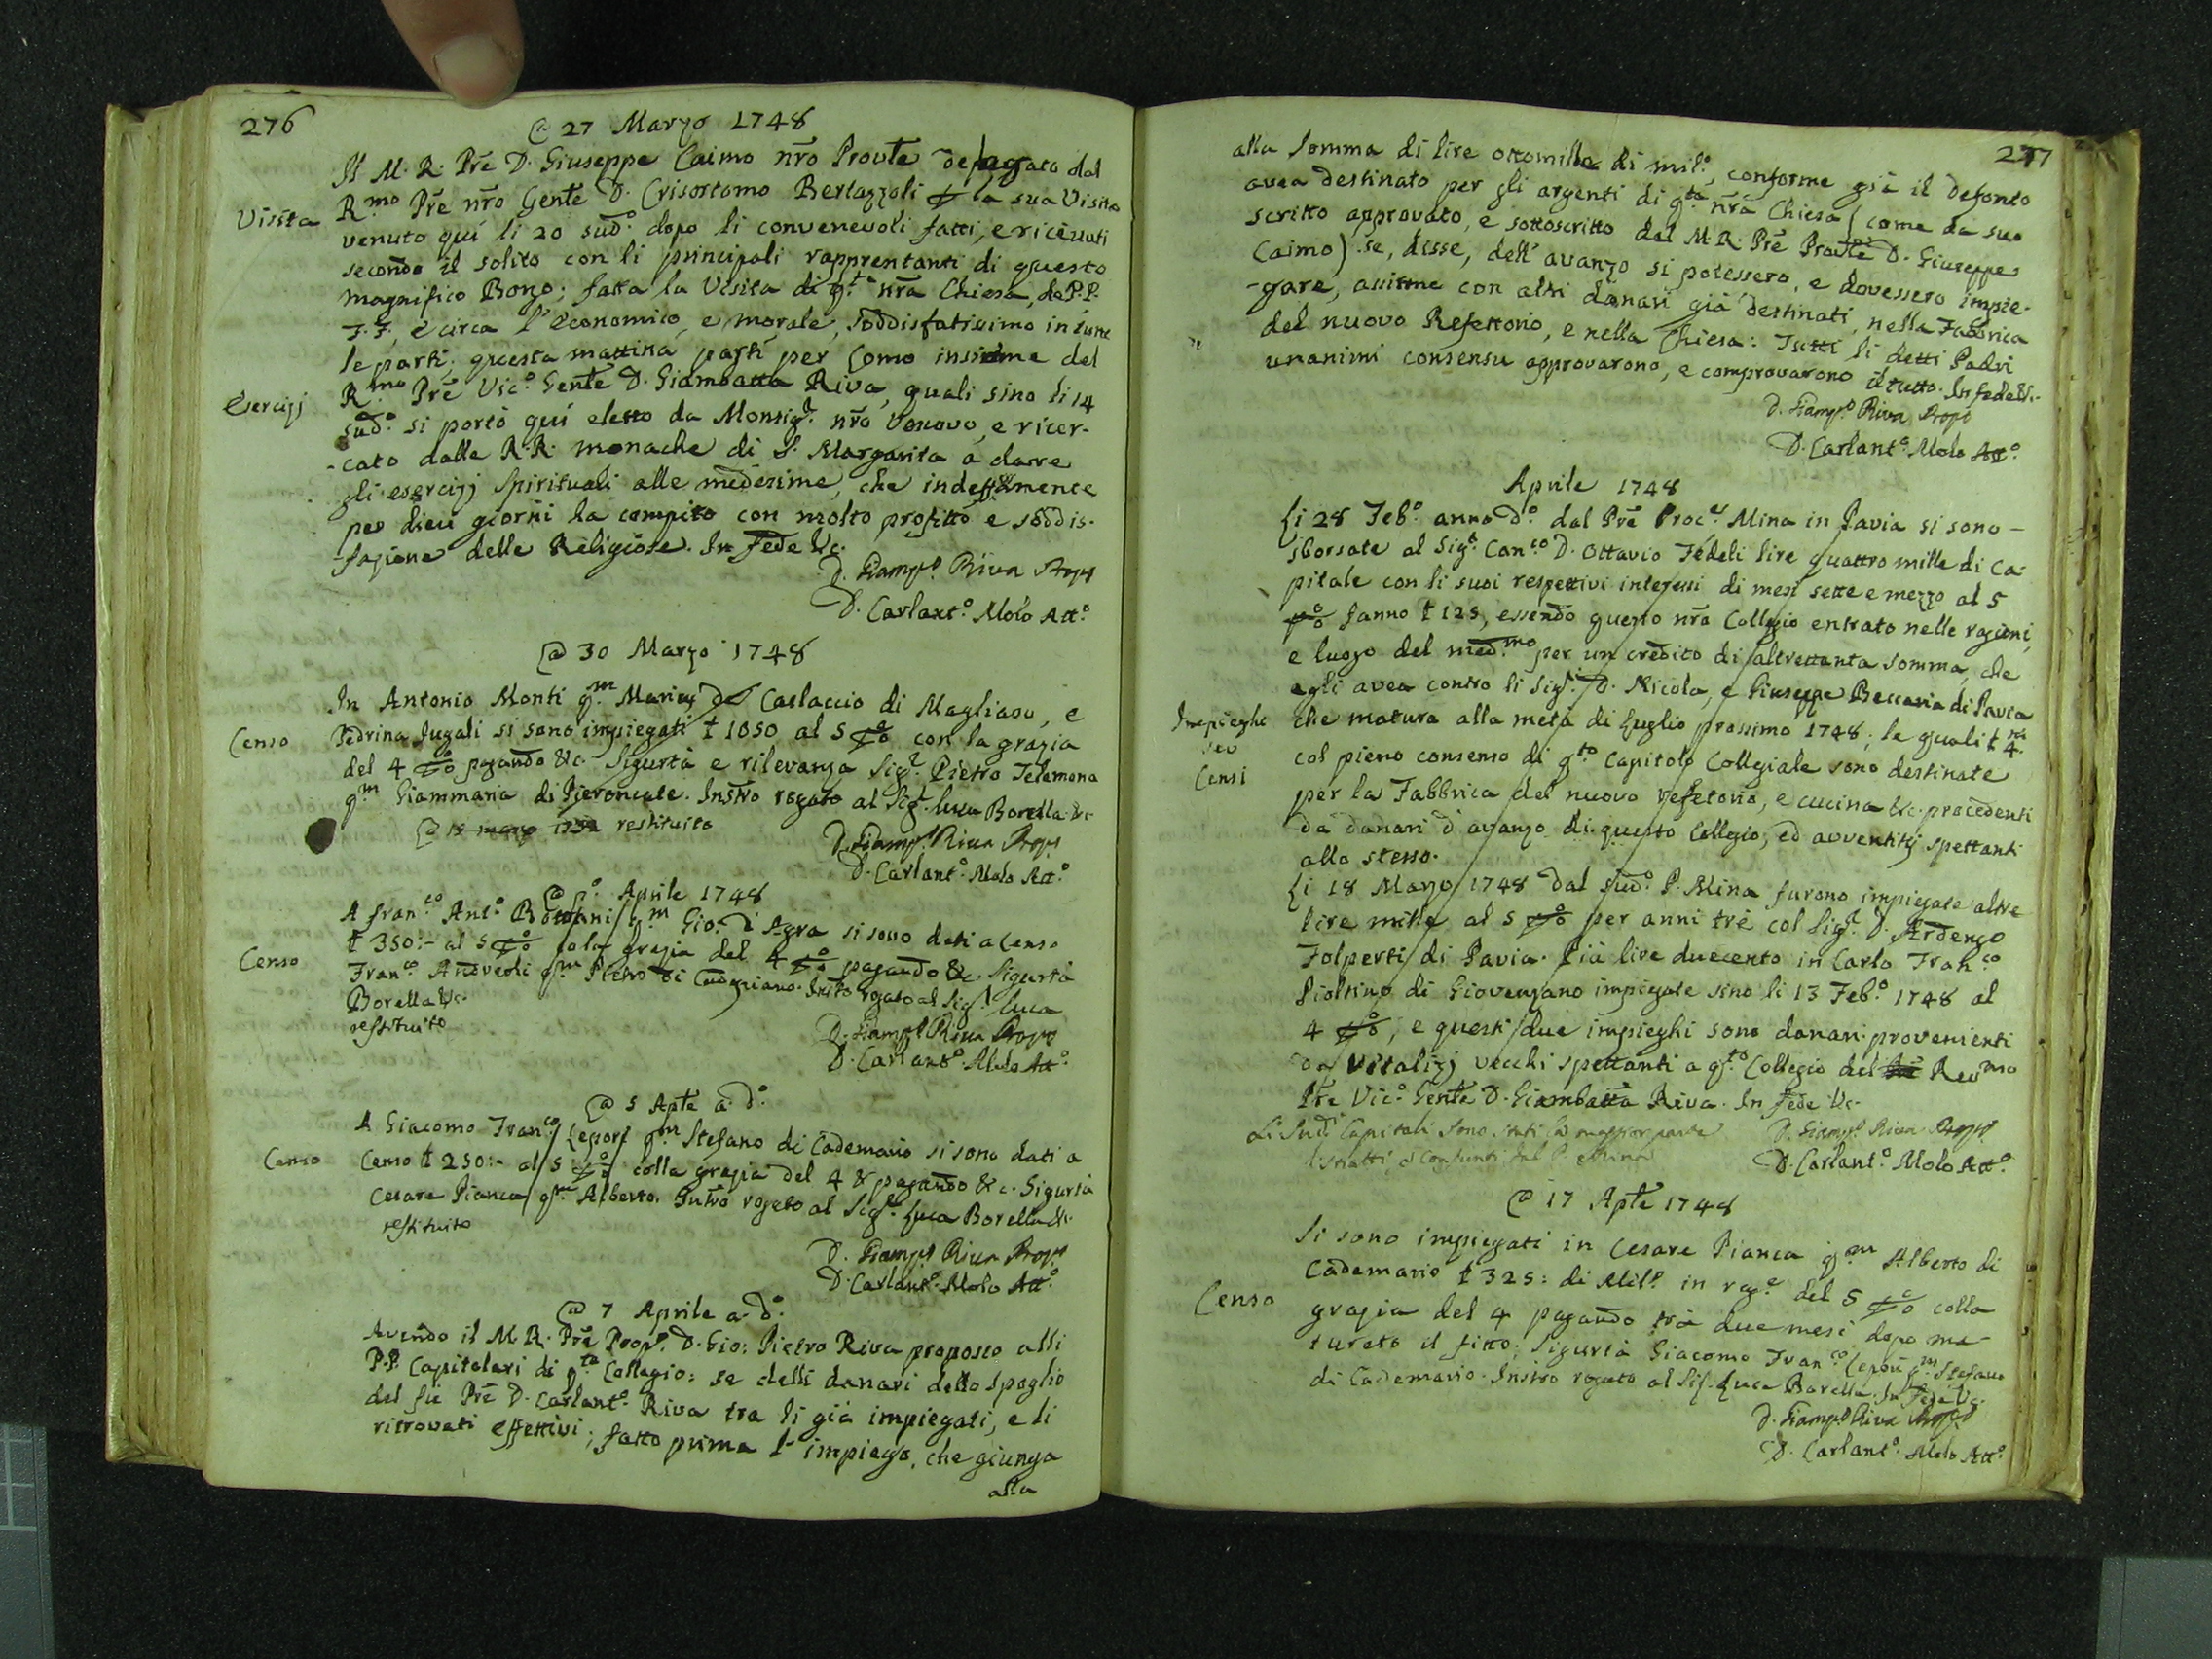 276
@ 27 Marzo 1748
Il M. R. Prē D. Giuseppe Caimo nr̄o Provle delegato dal
R.mo Prē nr̄o Gentē D. Crisostomo Bertazzoli la sua Visita
Visita
venuto quì li 20 sud.o dopo li convenevoli fatti, e ricevuti
secondo il solito con li principali rapprentanti di questo
magnifico Borgo; fatta la Visita di q.ta nr̄a Chiesa, de P.P.
F.F. e circa l'economico, e morale, soddisfatissimo in tutte
le parti; questa mattina partì per Como insieme del
R.mo Prē Vic.o Gentē D. Giambatta Riva, quali sino li 14
Esercizj
sud.o si portò quì eletto da Monsig.r nr̄o Vescovo, e ricer-
-cato dalle R.R. monache di S. Margarita a darre
gli esercizj Spirituali alle medesime, che indeffmente
per dieci giorni ha compito con molto profitto e soddis-
-fazione delle Religiose. In fede &c.
D. Giamp.o Riva Prop.o
D. Carlant.o Molo Att.o
@ 30 Marzo 1748
In Antonio Monti q.m Carlaccio di Magliaso, e
Censo
Pedrina Jugali si sono impiegati ₤ 1050 al 5 p%o con la grazia
del 4 p%o pagando &c. Sigurtà e rilevanza Sig.r Pietro Telamona
q.m Giammaria di. Instr̄o rogato al Sig.r Luca Borella &c.
@ 15 marzo restituito
D. Giamp.o Riva Prop.o
D. Carlant.o Molo Att.o
@ p.o Aprile 1748
A Fran.co Ant.o q.m Gio. d'Agra si sono dati a Censo
Censo
₤ 350:- al 5 p%o grazia del 4 p%o pagando &c. Sigurtà
Fran.co q.m Pietro di. Instr̄o rogato al Sig.r Luca
Borella &c.
restituito
D. Giamp.o Riva Prop.o
D. Carlant.o Molo Att.o
@ 5 Aplē a. d.o
A Giacomo Fran.co Lepori q.m Stefano di Cademario si sono dati a
Censo
Censo ₤ 250:- al 5 p%o colla grazia del 4 & pagando &c. Sigurtà
Cesare Pianca q.m Alberto. Instr̄o rogato al Sig.r Luca Borella &c.
restituito
D. Giamp.o Riva Prop.o
D. Carlant.o Molo Att.o
@ 7 Aprile a. d.o
Avendo il M. R. Prē Prop.o D. Gio: Pietro Riva proposto alli
P.P. Capitolari di q.to Collegio: se delli danari dello Spoglio
del fù Prē D. Carlant.o Riva tra li già impiegati, e li
ritrovati effettivi; fatto prima l'impiego, che giunga
alla
277
alla somma di lire ottomille di mil.o, conforme già il defonto
avea destinato per gli argenti di q.ta nr̄a Chiesa (come da suo
scritto approvato, e sottoscritto dal M. R. Prē Provlē D. Giuseppe
Caimo) se, disse, dell'avanzo si potessero, e dovessero impie-
-gare, assieme con altri danari già destinati, nella Fabbrica
del nuovo Refettorio, e nella Chiesa: Tutti li detti Padri
unanimi consensu approvarono, e comprovarono il tutto. In fede &c.
D. Giamp.o Riva Prop.o
D. Carlant.o Molo Att.o
Aprile 1748
Li 28 Feb.o anno d.o dal Prē Proc.r Mina in Pavia si sono -
sborsate al Sig.r Can.co D. Ottavio Fedeli lire quattro mille di Ca-
pitale con li suoi respettivi interessi di mesi sette e mezzo al 5
p%o fanno ₤ 125, essendo questo nr̄o Collegio entrato nelle ragioni,
e luogo del med.mo per un credito di altrettanta somma, che
egli avea contro li Sig.ri D. Nicola, e Giuseppe Beccaria di Pavia
Impieghi
seu
Censi
che matura alla metà di Luglio prossimo 1748; le quali ₤ 4.m
col pieno consenso di q.to Capitolo Collegiale sono destinate
per la Fabbrica del nuovo refetorio, e cucina &c. procedenti
da danari d'avanzo di questo Collegio, ed avventitij spettanti
allo stesso.
Li 18 Marzo 1748 dal sud.o P. Mina furono impiegate altre
lire mille al 5 p%o per anni trè col Sig.r D. Ardengo
Folperti di Pavia. Più lire duecento in Carlo Fran.co
Pioltino di Giovenzano impiegate sino li 13 Feb.o 1748 al
4 p%o; e questi due impieghi sono danari provenienti
da Vitalizj vecchi spettanti a q.to Collegio del Rev.mo
Prē Vic.o Gentē D. Giambatta Riva. In fede &c.
Li Sud.i Capitali sono stati la maggior parte
distratti, e consunti dal P. Mina
D. Giamp.o Riva Prop.o
D. Carlant.o Molo Att.o
@ 17 Aplē 1748
Si sono impiegati in Cesare Pianca q.m Alberto di
Cademario ₤ 325: di Mil.o in rag.e del 5 p%o colla
Censo
grazia del 4 pagando trà due mesi dopo ma-
turato il fitto; Sigurtà Giacomo Fran.co Lepori q.m Stefano
di Cademario. Instr̄o rogato al Sig.r Luca Borella. In Fede &c.
D. Giamp.o Riva Prop.o
D. Carlant.o Molo Att.o